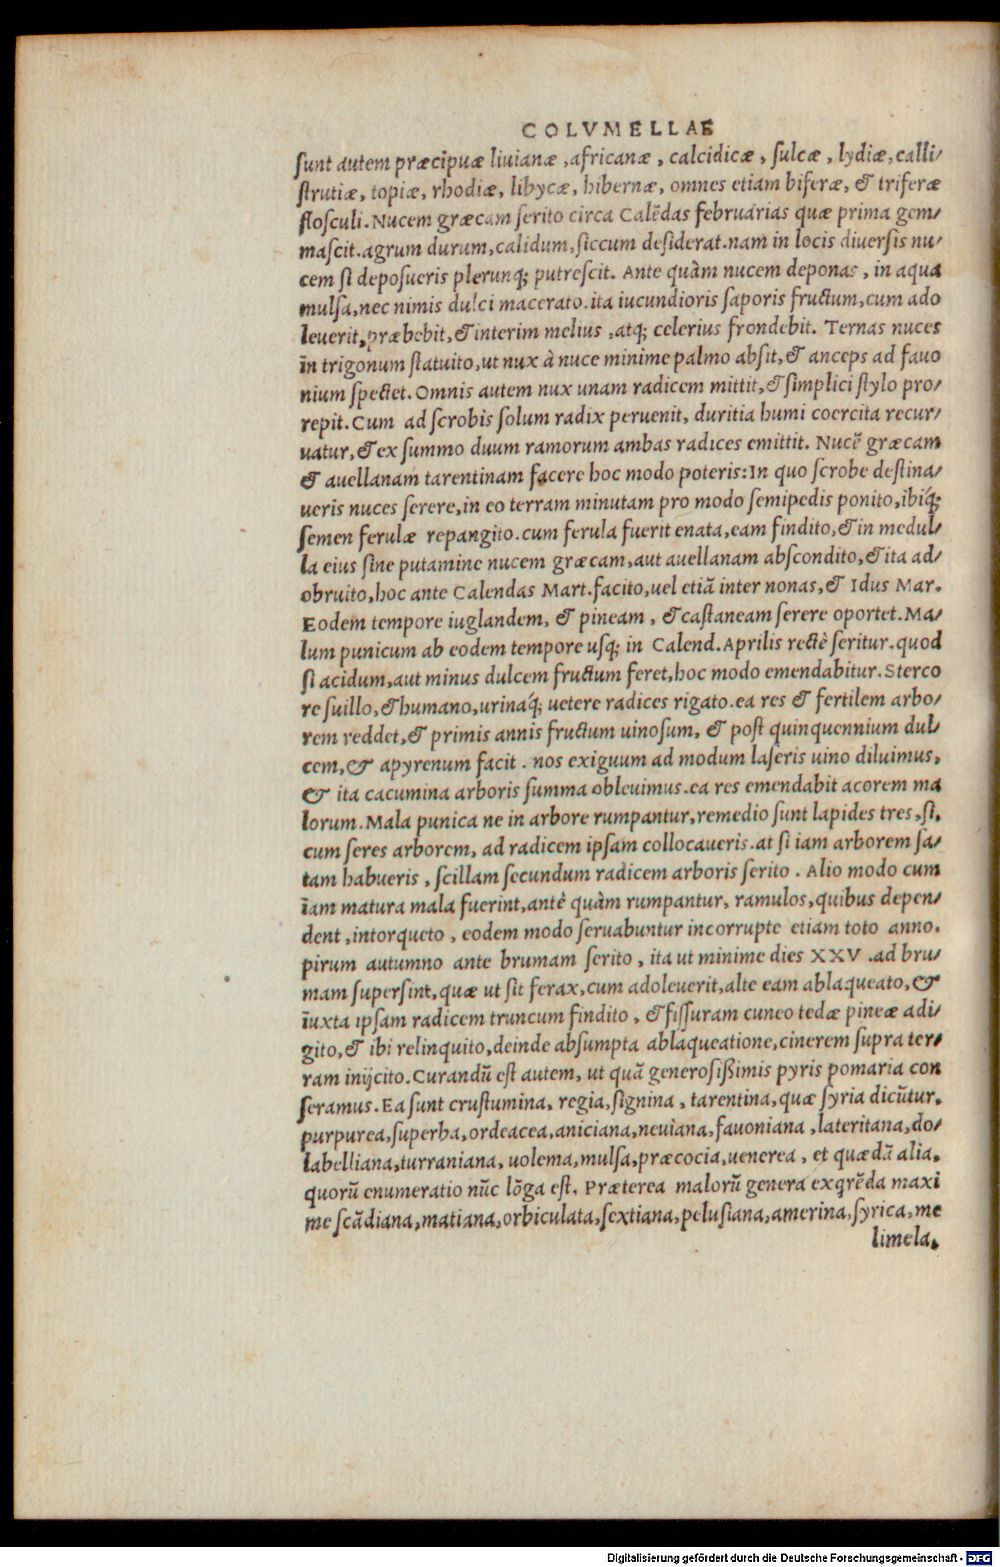 COLVMELLAE
sunt autem præcipuæ liuianæ, africanæ, calcidicæ, sulcæ, lydiæ, calli/
strutiæ, topiæ, rhodiæ, libycæ, hibernæ, omnes etiam biferæ, & triferæ
flosculi. Nucem græcam serito circa Calẽdas februarias quæ prima gem/
mascit. agrum durum, calidum, siccum desiderat. nam in locis diuersis nu/
cem si deposueris plerunq; putrescit. Ante quàm nucem deponas, in aqua
mulsa, nec nimis dulci macerato. ita iucundioris saporis fructum, cum ado
leuerit, præbebit, & interim melius, atq; celerius frondebit. Ternas nuces
in trigonum statuito, ut nux à nuce minime palmo absit, & anceps ad fauo
nium spectet. Omnis autem nux unam radicem mittit, & simplici stylo pro/
repit. Cum ad scrobis solum radix peruenit, duritia humi coercita recur/
uatur, & ex summo duum ramorum ambas radices emittit. Nucẽ græcam
& auellanam tarentinam facere hoc modo poteris: In quo scrobe destina/
ueris nuces serere, in eo terram minutam pro modo semipedis ponito, ibiq́;
semen ferulæ repangito. cum ferula fuerit enata, eam findito, & in medul/
la eius sine putamine nucem græcam, aut auellanam abscondito, & ita ad/
obruito, hoc ante Calendas Mart. facito, uel etiã inter nonas, & Idus Mar.
Eodem tempore iuglandem, & pineam, & castaneam serere oportet. Ma/
lum punicum ab eodem tempore usq; in Calend. Aprilis rectè seritur. quod
si acidum, aut minus dulcem fructum feret, hoc modo emendabitur. Sterco
re suillo, & humano, urinaq́; uetere radices rigato. ea res & fertilem arbo/
rem reddet, & primis annis fructum uinosum, & post quinquennium dul/
cem, & apyrenum facit. nos exiguum ad modum laseris uino diluimus,
& ita cacumina arboris summa obleuimus. ea res emendabit acorem ma
lorum. Mala punica ne in arbore rumpantur, remedio sunt lapides tres, si,
cum seres arborem, ad radicem ipsam collocaueris. at si iam arborem sa/
tam habueris, scillam secundum radicem arboris serito. Alio modo cum
iam matura mala fuerint, antè quàm rumpantur, ramulos, quibus depen/
dent, intorqueto, eodem modo seruabuntur incorrupte etiam toto anno.
pirum autumno ante brumam serito, ita ut minime dies XXV. ad bru/
mam supersint, quæ ut sit ferax, cum adoleuerit, alte eam ablaqueato, &
iuxta ipsam radicem truncum findito, & fissuram cuneo tedæ pineæ adi/
gito, & ibi relinquito, deinde absumpta ablaqueatione, cinerem supra ter/
ram inijcito. Curandũ est autem, ut quã generosißimis pyris pomaria con
seramus. Ea sunt crustumina, regia, signina, tarentina, quæ syria dicũtur,
purpurea, superba, ordeacea, aniciana, neuiana, fauoniana, lateritana, do/
labelliana, turraniana, uolema, mulsa, præcocia, uenerea, et quædã alia,
quorũ enumeratio nũc lõga est. Præterea malorũ genera exqrẽda maxi
me scãdiana, matiana, orbiculata, sextiana, pelusiana, amerina, syrica, me
limela,
Digitalisierung gefördert durch die Deutsche Forschungsgemeinschaft - DFG